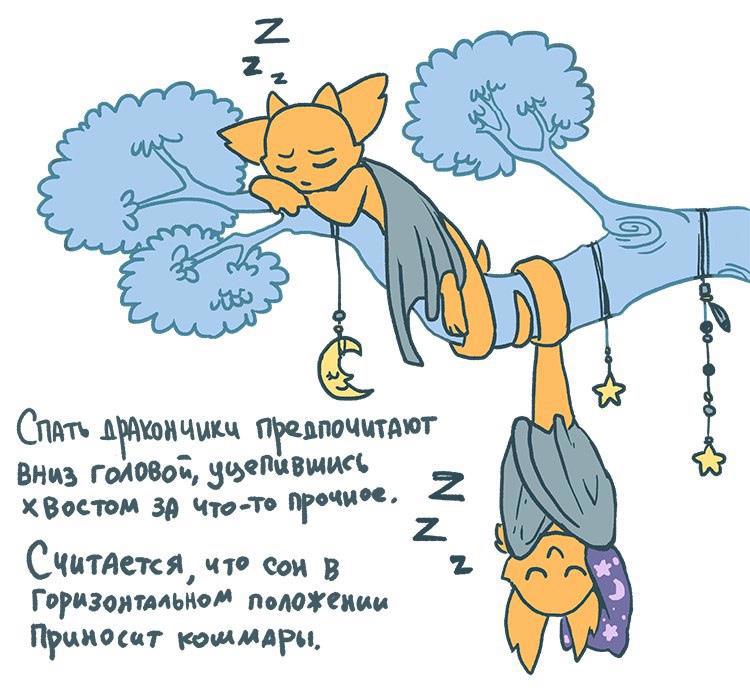 Z
z
z
Спать дракончики предпочитают
вниз головой, уцепившись
хвостом за что-то прочное.
Z
Z
z
Считается, что сон в
горизонтальном положении
приносит кошмары.